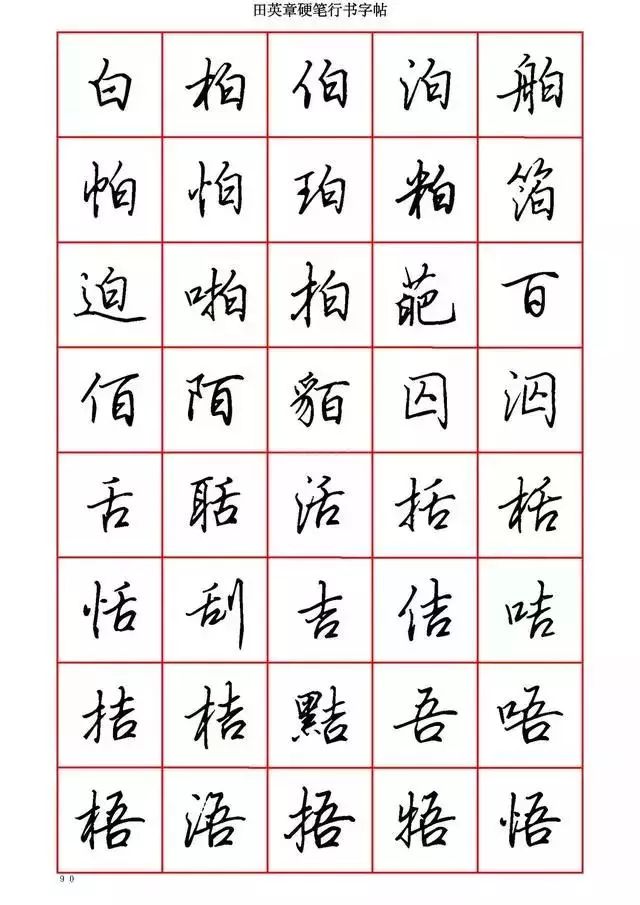 田英章硬笔行书字帖
白 柏 伯 泊 舶
帕 怕 珀 粕 箔
迫 啪 拍 葩 百
佰 陌 貊 囚 泅
舌 聒 活 括 栝
恬 刮 吉 佶 咭
拮 桔 黠 吾 唔
梧 浯 捂 牾 悟
90